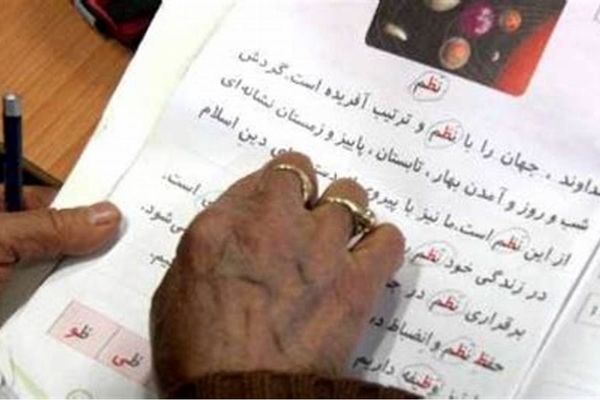 نظم
خداوند ، جهان را با نظم و ترتیب آفریده است. گردش
شب و روز و آمدن بهار ، تابستان ، پاییز و زمستان نشانه‌ای
از این نظم است. ما نیز با پیروی دین اسلام
در زندگی خود نظم است.
برقراری نظم در می‌شود.
حفظ نظم و انضباط در
وظیفه داریم
ظی ظو